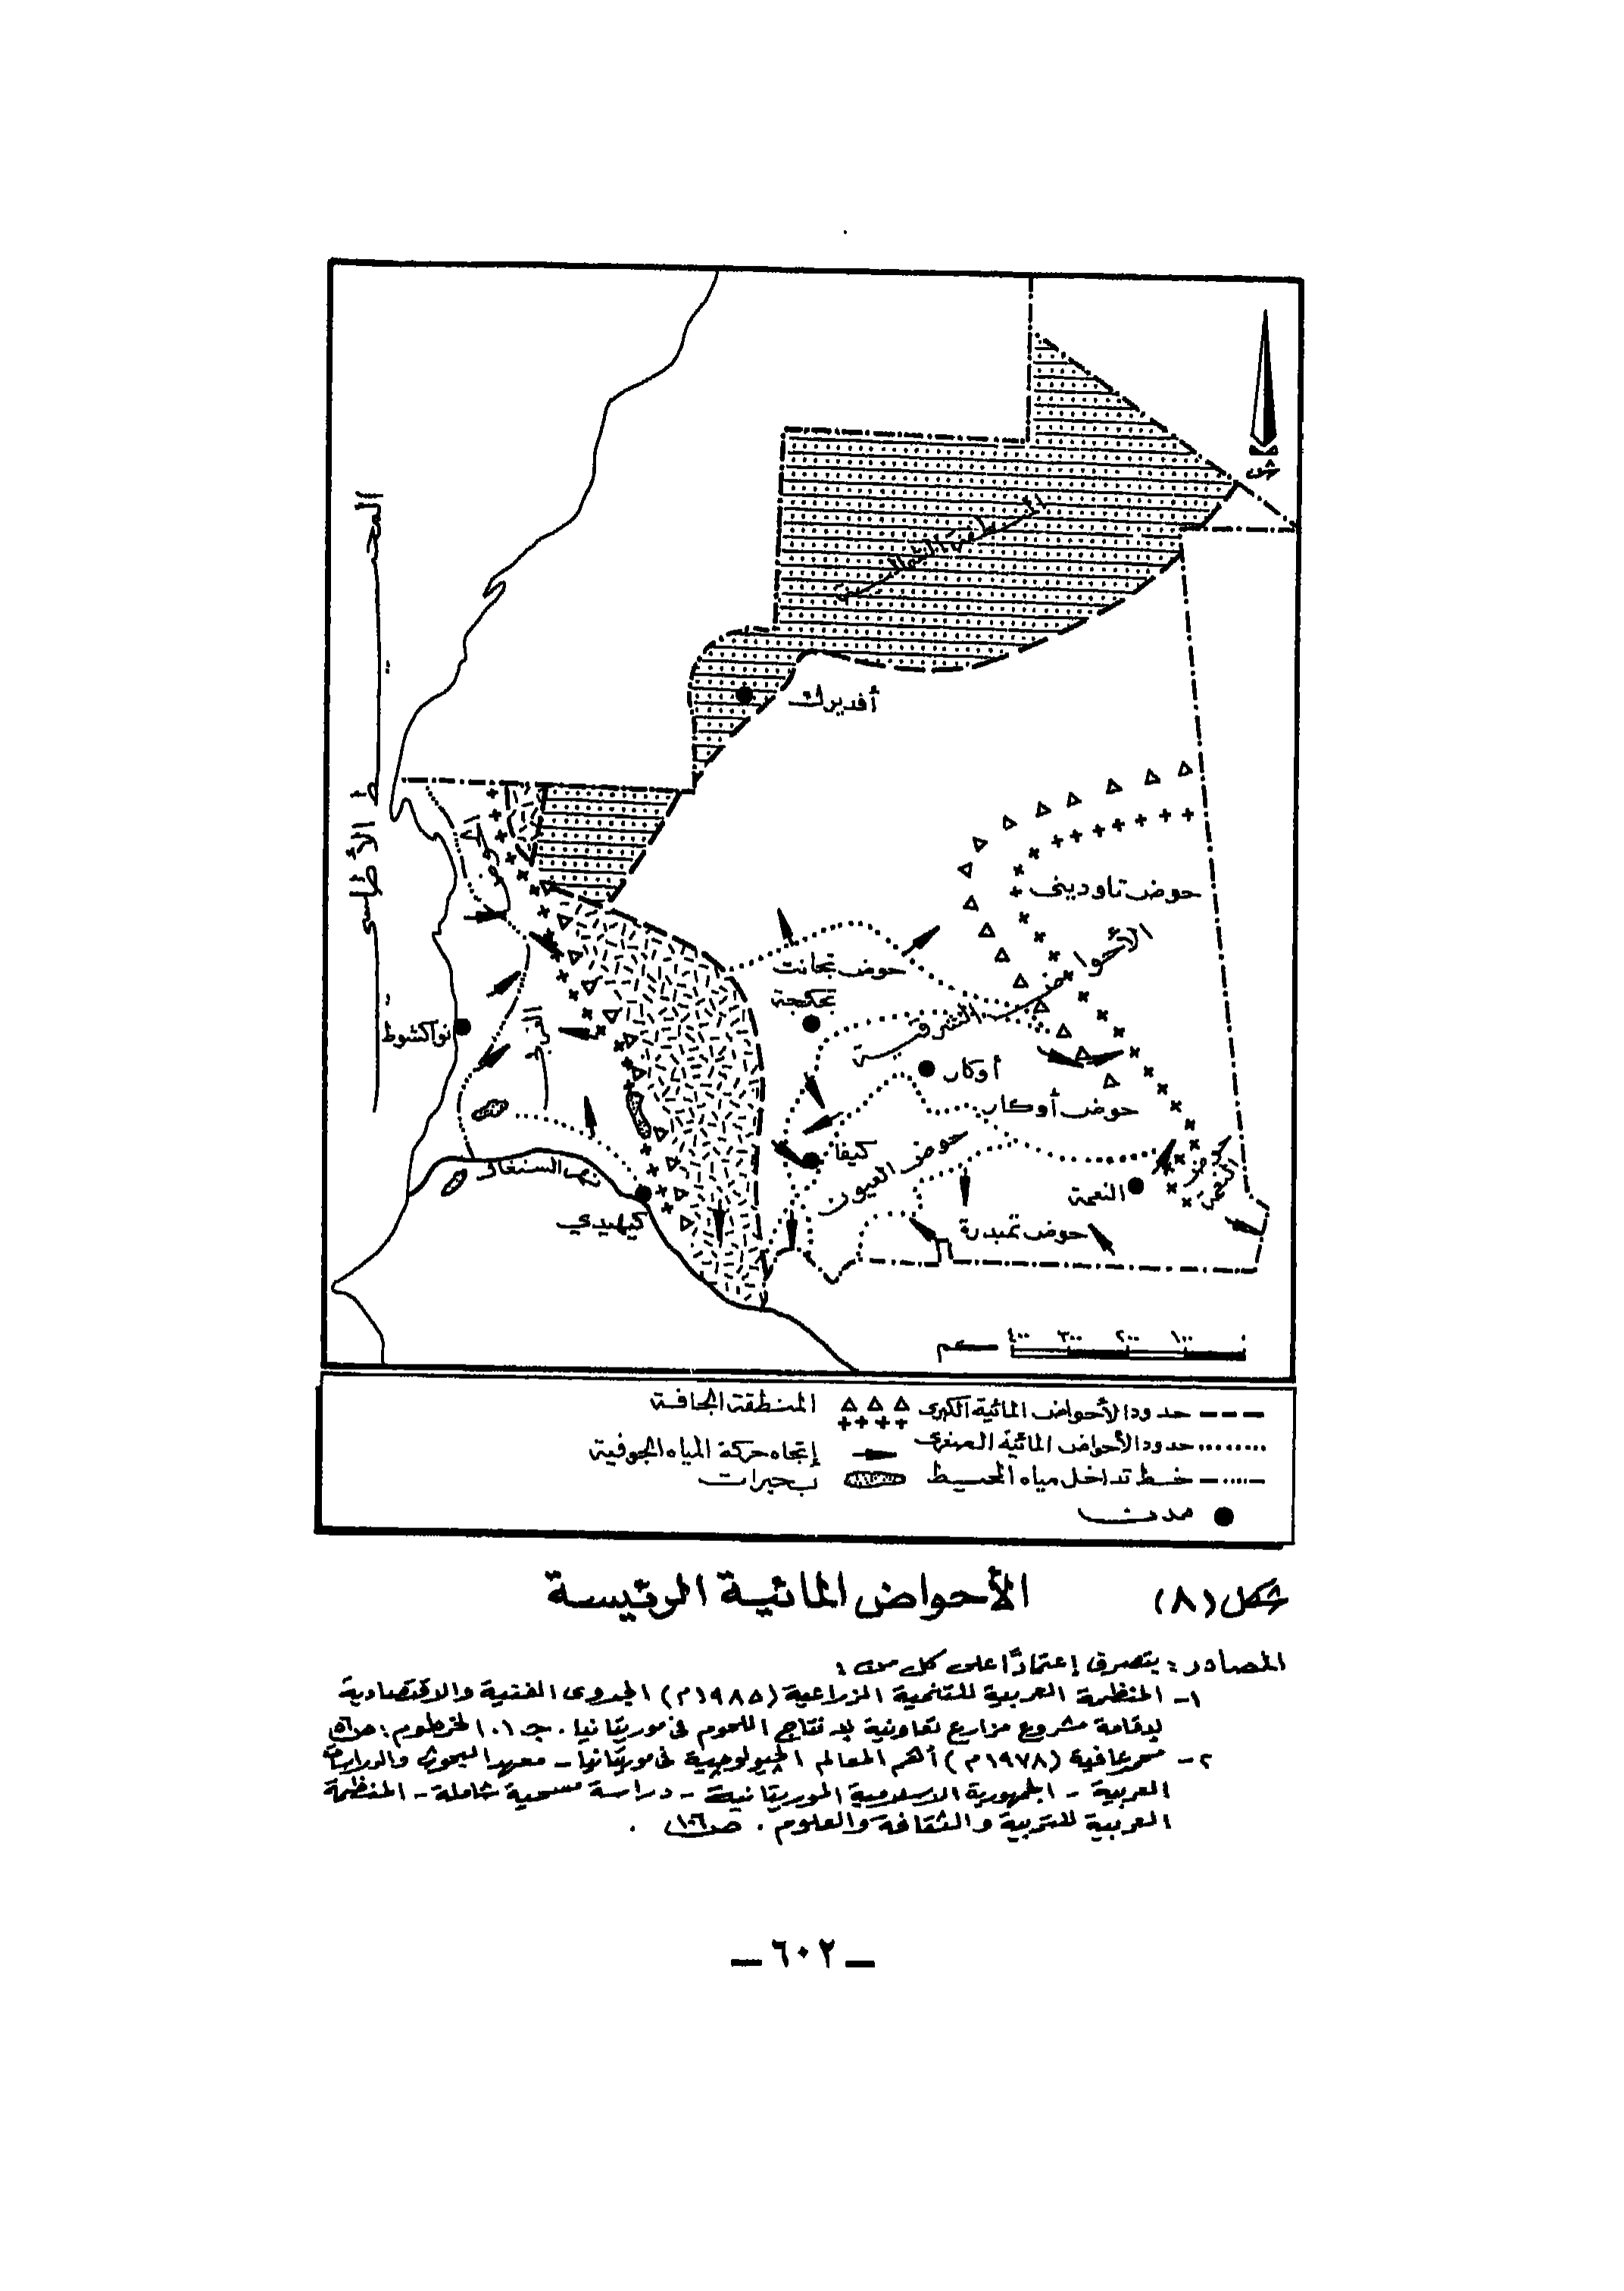 ش
المحيط الأطلسي
المنطقة الشمالية
أفديرك
الحوض
حوض تاوديني
الأحواض الشرقية
حوض تجانت
تجكجة
نواكشوط
الغربي
أوكار
حوض أوكار
كيفا
حوض العيون
حوض النعمة
النعمة
نهر السنغال
كيهيدي
حوض تمبدرة
٤٠٠ ٣٠٠ ٢٠٠ ١٠٠ ٠
كم
حدود الأحواض المائية الكبرى
المنطقة الجافة
حدود الأحواض المائية الصغرى
إتجاه حركة المياه الجوفية
خط تداخل مياه المحيط
بحيرات
مدن
شكل (٨) الأحواض المائية الرئيسة
المصادر : بتصرف إعتمادًا على كل من :
١- المنظمة العربية للتنمية الزراعية (١٩٨٥م) الجدوى الفنية والاقتصادية
لإقامة مشروع مزارع تعاونية لإنتاج اللحوم في موريتانيا . جـ ١٠ الخرطوم : ص٥٦
٢- عافية (١٩٧٨م) أهم المعالم الجيولوجية في موريتانيا - معهد البحوث والدراسات
العربية - الجمهورية الاسلامية الموريتانية - دراسة مسحية شاملة - المنظمة
العربية للتربية والثقافة والعلوم . ص١٠٦ .
— ٦٠٢ —